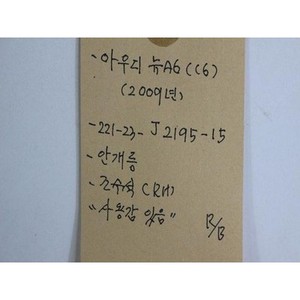 - 아우디 뉴A6 (C6)
(2009년)
- 221-23- J2195-15
- 안개등
- 조수석 (RH)
"사용감 있음"
B/B